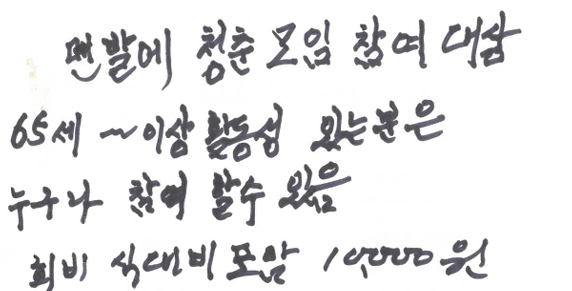 맨발에 청춘 모임 참여 대상
65세 ~이상 활동성 있는분은
누구나 참여 할수 있음
회비 식대비 포함 10,000원